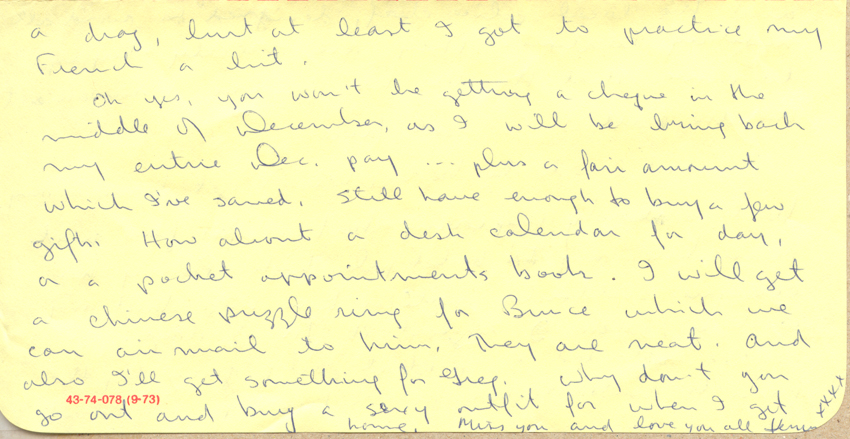 a drag, but at least I got to practice my
French a bit.
Oh yes, you won't be getting a cheque in the
middle of December, as I will be bring back
my entire Dec. pay ... plus a fair amount
which I've saved. Still have enough to buy a few
gifts. How about a desk calendar for day,
or a pocket appointments book. I will get
a chinese puzzle ring for Bruce which we
can airmail to him. They are neat. And
also I'll get something for Greg. Why don't you
43-74-078 (9-73)
go out and buy a sexy outfit for when I get
home. Miss you and love you all
xxxx